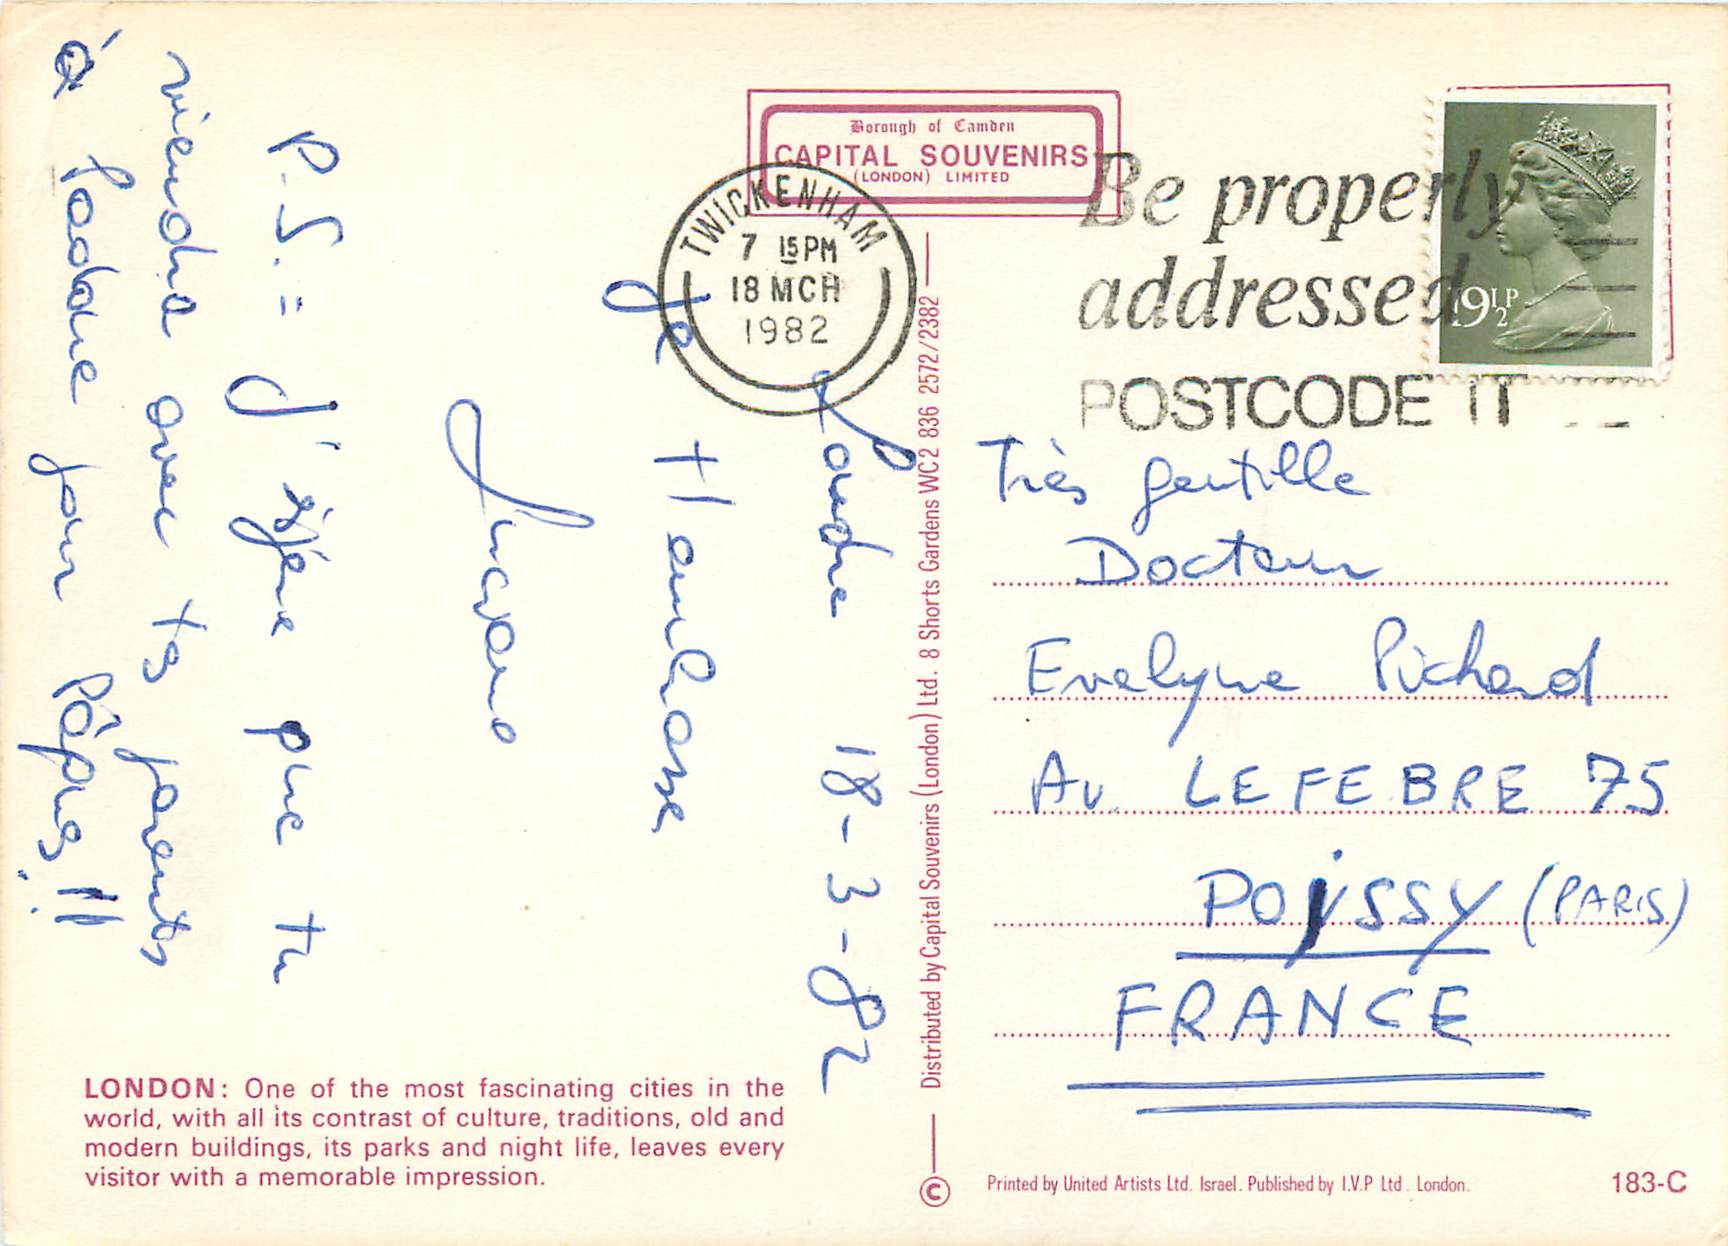 Borough of Camden
CAPITAL SOUVENIRS
(LONDON) LIMITED
TWICKENHAM
7 15 PM
18 MCH
1982
Be properly
addressed
POSTCODE IT
19½P
Londre 18-3-82
Je t'embrasse
P.S. = J'espère que tu
viendra avec tes parents
à Padoue pour Pâques!!
Très gentille
Docteur
Evelyne Pichard
Av. LEFEBRE 75
POISSY (PARIS)
FRANCE
LONDON: One of the most fascinating cities in the
world, with all its contrast of culture, traditions, old and
modern buildings, its parks and night life, leaves every
visitor with a memorable impression.
Distributed by Capital Souvenirs (London) Ltd. 8 Shorts Gardens WC2 836 2572/2382
©
Printed by United Artists Ltd. Israel. Published by I.V.P Ltd. London.
183-C